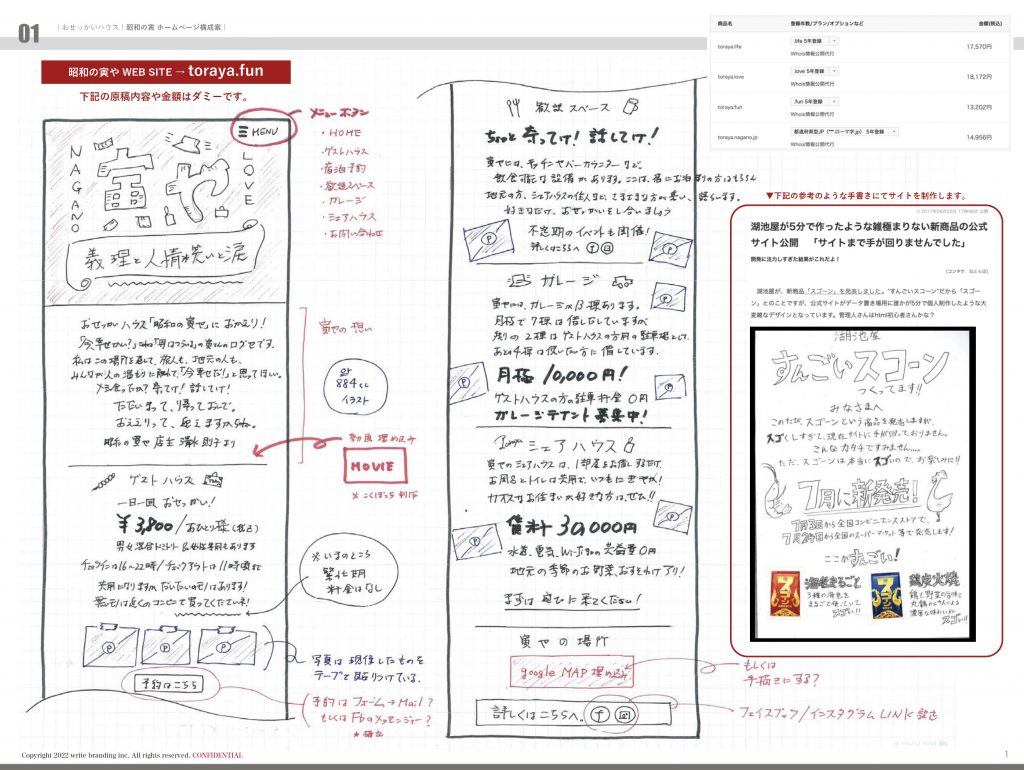 01
|おせっかいハウス|昭和の寅 ホームページ構成案|
昭和の寅や WEB SITE → toraya.fun
下記の原稿内容や金額はダミーです。
商品名 登録年数/プラン/オプションなど 金額(税込)
toraya.life .life 5年登録 17,570円
Whois情報公開代行
toraya.love .love 5年登録 18,172円
Whois情報公開代行
toraya.fun .fun 5年登録 13,202円
Whois情報公開代行
toraya.nagano.jp 都道府県型JP(***.ローマ字.jp) 5年登録 14,956円
Whois情報公開代行
MENU
NAGANO
寅や
LOVE
義理と人情と笑いと涙
メニューボタン
・HOME
・ゲストハウス
・宿泊予約
・歓談スペース
・ガレージ
・シェアハウス
・お問い合わせ
おせっかいハウス「昭和の寅や」に おかえり!
私はこの場所を通して、旅人も、地元の人も、
メシ食ったか? 寄ってけ! 話してけ!
ただいまって、帰っておいで。
寅やの想い
884くん
イラスト
動画埋め込み
MOVIE
ゲスト ハウス
一日一回 おせっかい!
¥3,800/おひとり様(税込)
チェックインは16〜22時/チェックアウトは11時頃まで
※いまのところ
繁忙期
料金はなし
P
P
P
写真は 現像したものを
テープで貼りつけている。
予約はこちら
予約は フォーム→Mail?
もしくは Fbのメッセンジャー?
歓談 スペース
ちょっと 寄ってけ! 話してけ!
寅やには、キッチンやバーカウンターなど、
飲食可能な設備があります。ここは、宿にお泊まりの方はもちろん
地元の方、シェアハウスの住人など、さまざまな方が集い、語らいます。
好きなだけ、おせっかいをし合いましょう
不定期のイベントも開催!
詳しくはこちらへ
P
P
ガレージ
寅やには、ガレージが13棟あります。
月極で7棟は貸し出していますが、
残りの2棟はゲストハウスの方用の駐車場として、
あと4棟は使いたい方に貸しています。
P
P
P
月極 10,000円!
ゲストハウスの方の駐車料金 0円
ガレージテナント 募集中!
シェアハウス
寅やのシェアハウスは、1部屋をお貸し
お風呂とトイレは共用で、いつもにぎやか!
カオスなお住まいが好きな方は、ぜひ!!
賃料 30,000円
P
P
水道、電気、Wi-Fiなどの共益費0円
地元の季節のお野菜、おすそわけアリ!
まずは 遊びに 来てください!
寅やの場所
google MAP 埋め込み
もしくは
手描きにする?
詳しくはこちらへ。
フェイスブック/インスタグラムLINK設定
▼下記の参考のような手書きにてサイトを制作します。
2017年06月20日 17時46分 公開
湖池屋が5分で作ったような雑極まりない新商品の公式
サイト公開 「サイトまで手が回りませんでした」
開発に注力しすぎた結果がこれだよ!
[コンタケ, ねとらぼ]
湖池屋が、新商品「スゴーン」を発表しました。“すんごいスコーン”だから「スゴー
ン」とのことですが、公式サイトがデータ置き場用に誰かが5分で個人制作したような大
変雑なデザインとなっています。管理人さんはhtml初心者さんかな?
湖池屋
すんごいスコーン
つくってます!!
みなさまへ
このたび、スゴーンという商品を発売しますが、
スゴくしすぎて、現在サイトに手が回っておりません。
こんなカタチですみません……
ただ、スゴーンは本当にスゴいので、お楽しみに!!
7月に新発売!
7月3日から全国コンビニエンスストアで、
7月24日から全国のスーパーマーケット等で発売します!
ここがすんごい!
海老まるごと
3種の海老を
まるごと使っていて
スゴい!!
鶏炭火焼
鶏と野菜の旨味と
濃厚な味わいが
スゴい!!
Copyright 2022 write branding inc. All rights reserved. CONFIDENTIAL
1